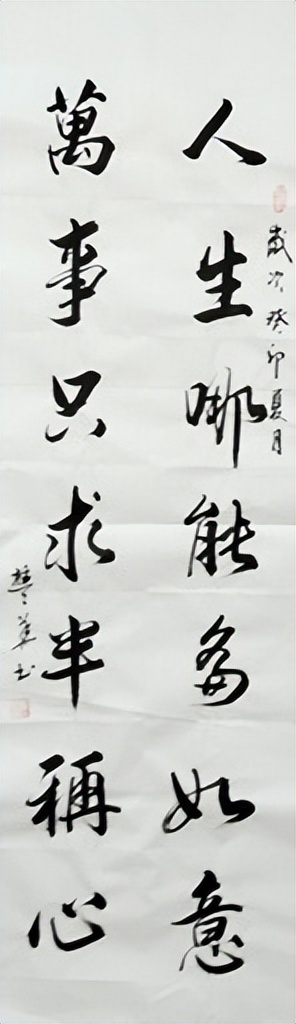 人生哪能多如意
歲次癸卯夏月
萬事只求半稱心